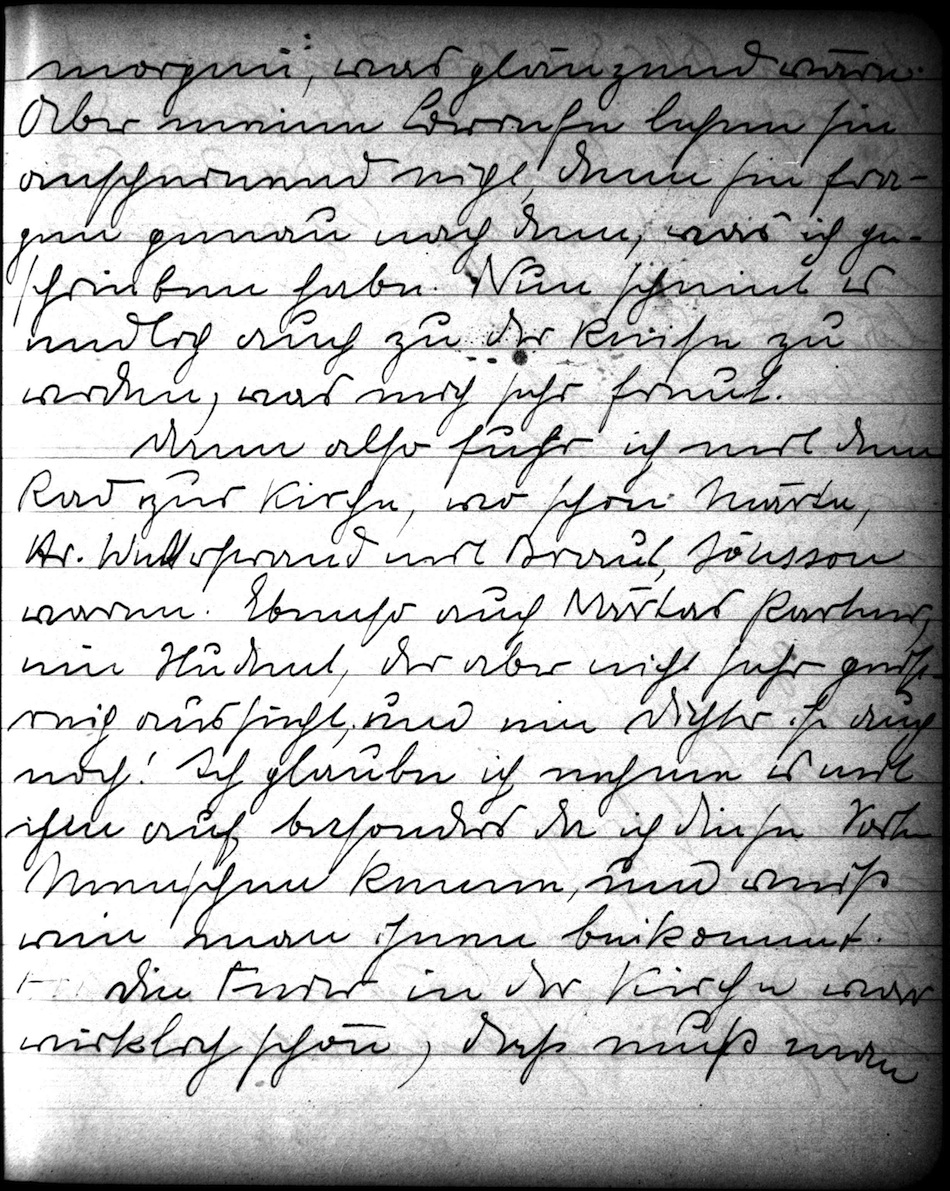 morgen, was glänzend wäre.
Aber meine Berichte lesen sie
anscheinend nicht, denn sie fra-
gen genau nach dem, was ich ge-
schrieben habe. Nun scheint es
endlich auch zu der Reise zu
werden, was mich sehr freut.
Dann also fuhr ich mit dem
Rad zur Kirche, wo schon Märta,
Hr. mit Braut, Jönsson
waren. Ebenso auch Märtas Partner,
ein Student, der aber nicht sehr geist-
reich aussieht, und ein Dichter ist auch
noch! Ich glaube ich nehme es mit
ihm auf, besonders da ich diese Sorte
Menschen kenne, und weiß
wie man ihnen beikommt.
Die Feier in der Kirche war
wirklich schön, daß muß man